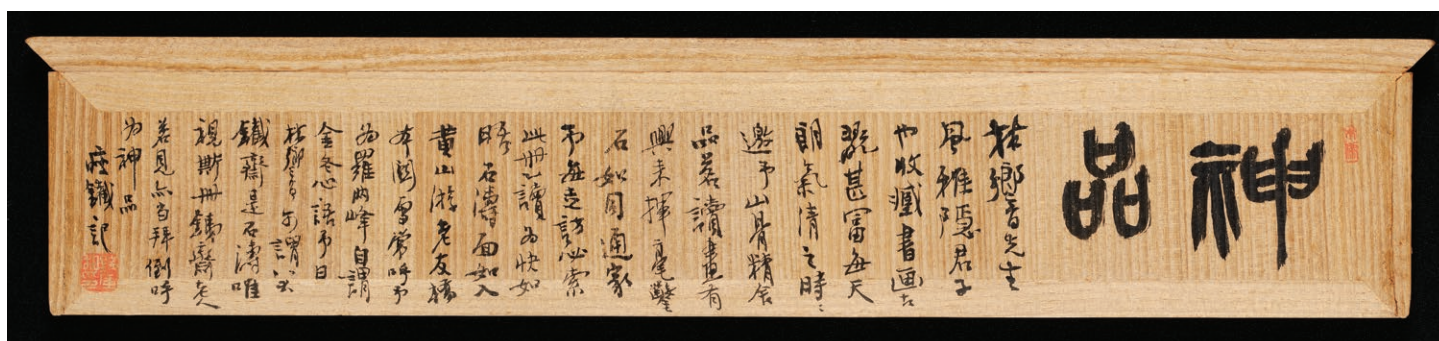 神品
林鄉音先生
風雅隱君子
也收藏書画古
甚富每天
朗氣清之時〻
邀予山骨精舍
品茗讀畫有
興來揮毫鑒
石如同通家
予每走訪必索
此冊一讀為快如
晤石濤面如入
黃山游老友橋
本關雪常呼予
為羅兩峰自謂
金冬心語予曰
林鄉音可謂
鐵齋是石濤唯
視斯冊鐵齋老人
若見亦當拜倒呼
為神品
鐵記